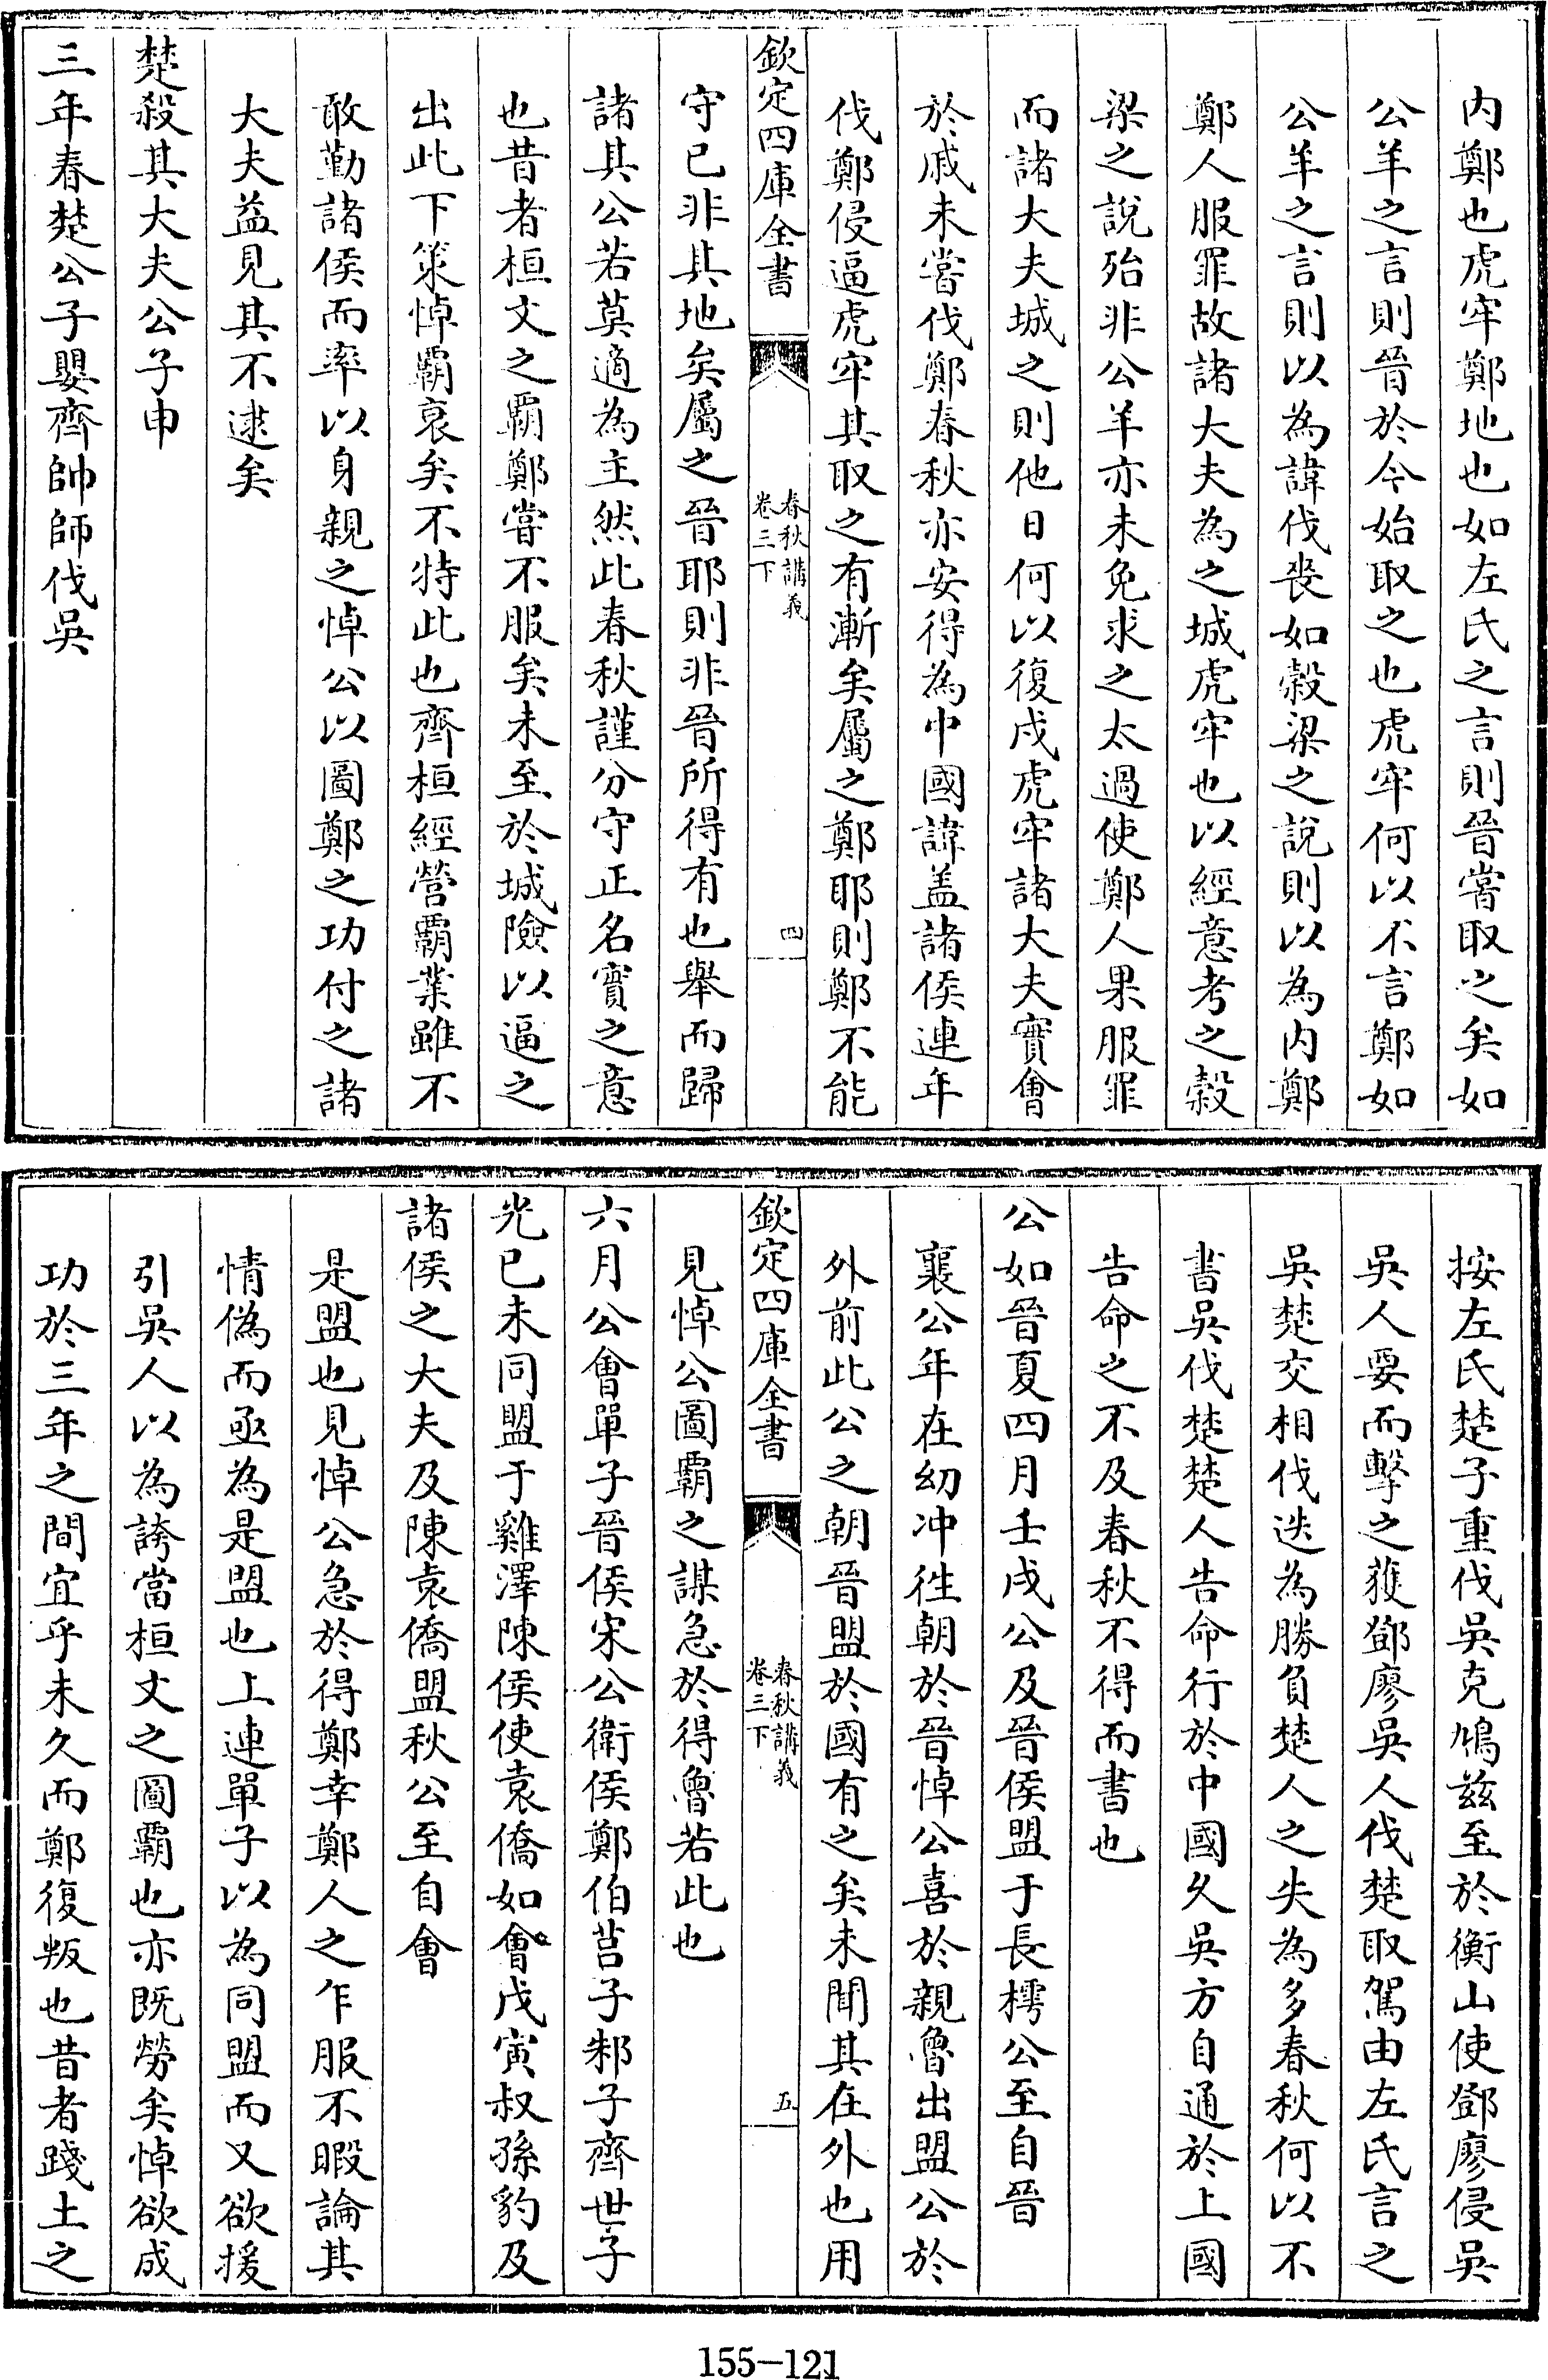 内鄭也虎牢鄭地也如左氏之言則晉嘗取之矣如
公羊之言則晉於今始取之也虎牢何以不言鄭如
公羊之言則以為諱伐喪如榖梁之說則以為内鄭
鄭人服罪故諸大夫為之城虎牢也以經意考之榖
梁之說殆非公羊亦未免求之太過使鄭人果服罪
而諸大夫城之則他日何以復戍虎牢諸大夫實會
於戚未嘗伐鄭春秋亦安得為中國諱盖諸侯連年
伐鄭侵逼虎牢其取之有漸矣屬之鄭耶則鄭不能
欽定四庫全書
春秋講義
卷三下
四
守已非其地矣屬之晉耶則非晉所得有也舉而歸
諸其公若莫適為主然此春秋謹分守正名實之意
也昔者桓文之覇鄭嘗不服矣未至於城險以逼之
出此下策悼覇衰矣不特此也齊桓經營覇業雖不
敢勤諸侯而率以身親之悼公以圖鄭之功付之諸
大夫益見其不逮矣
楚殺其大夫公子申
三年春楚公子嬰齊帥師伐吳
按左氏楚子重伐吳克鳩兹至於衡山使鄧廖侵吳
吳人要而擊之獲鄧廖吳人伐楚取駕由左氏言之
吳楚交相伐迭為勝負楚人之失為多春秋何以不
書吳伐楚楚人告命行於中國久吳方自通於上國
告命之不及春秋不得而書也
公如晉夏四月壬戌公及晉侯盟于長樗公至自晉
襄公年在幼冲往朝於晉悼公喜於親魯出盟公於
外前此公之朝晉盟於國有之矣未聞其在外也用
欽定四庫全書
春秋講義
卷三下
五
見悼公圖覇之謀急於得魯若此也
六月公會單子晉侯宋公衛侯鄭伯莒子邾子齊世子
光已未同盟于雞澤陳侯使袁僑如會戊寅叔孫豹及
諸侯之大夫及陳袁僑盟秋公至自會
是盟也見悼公急於得鄭幸鄭人之乍服不暇論其
情偽而亟為是盟也上連單子以為同盟而又欲援
引吳人以為誇當桓文之圖覇也亦既勞矣悼欲成
功於三年之間宜乎未久而鄭復叛也昔者踐土之
155-121